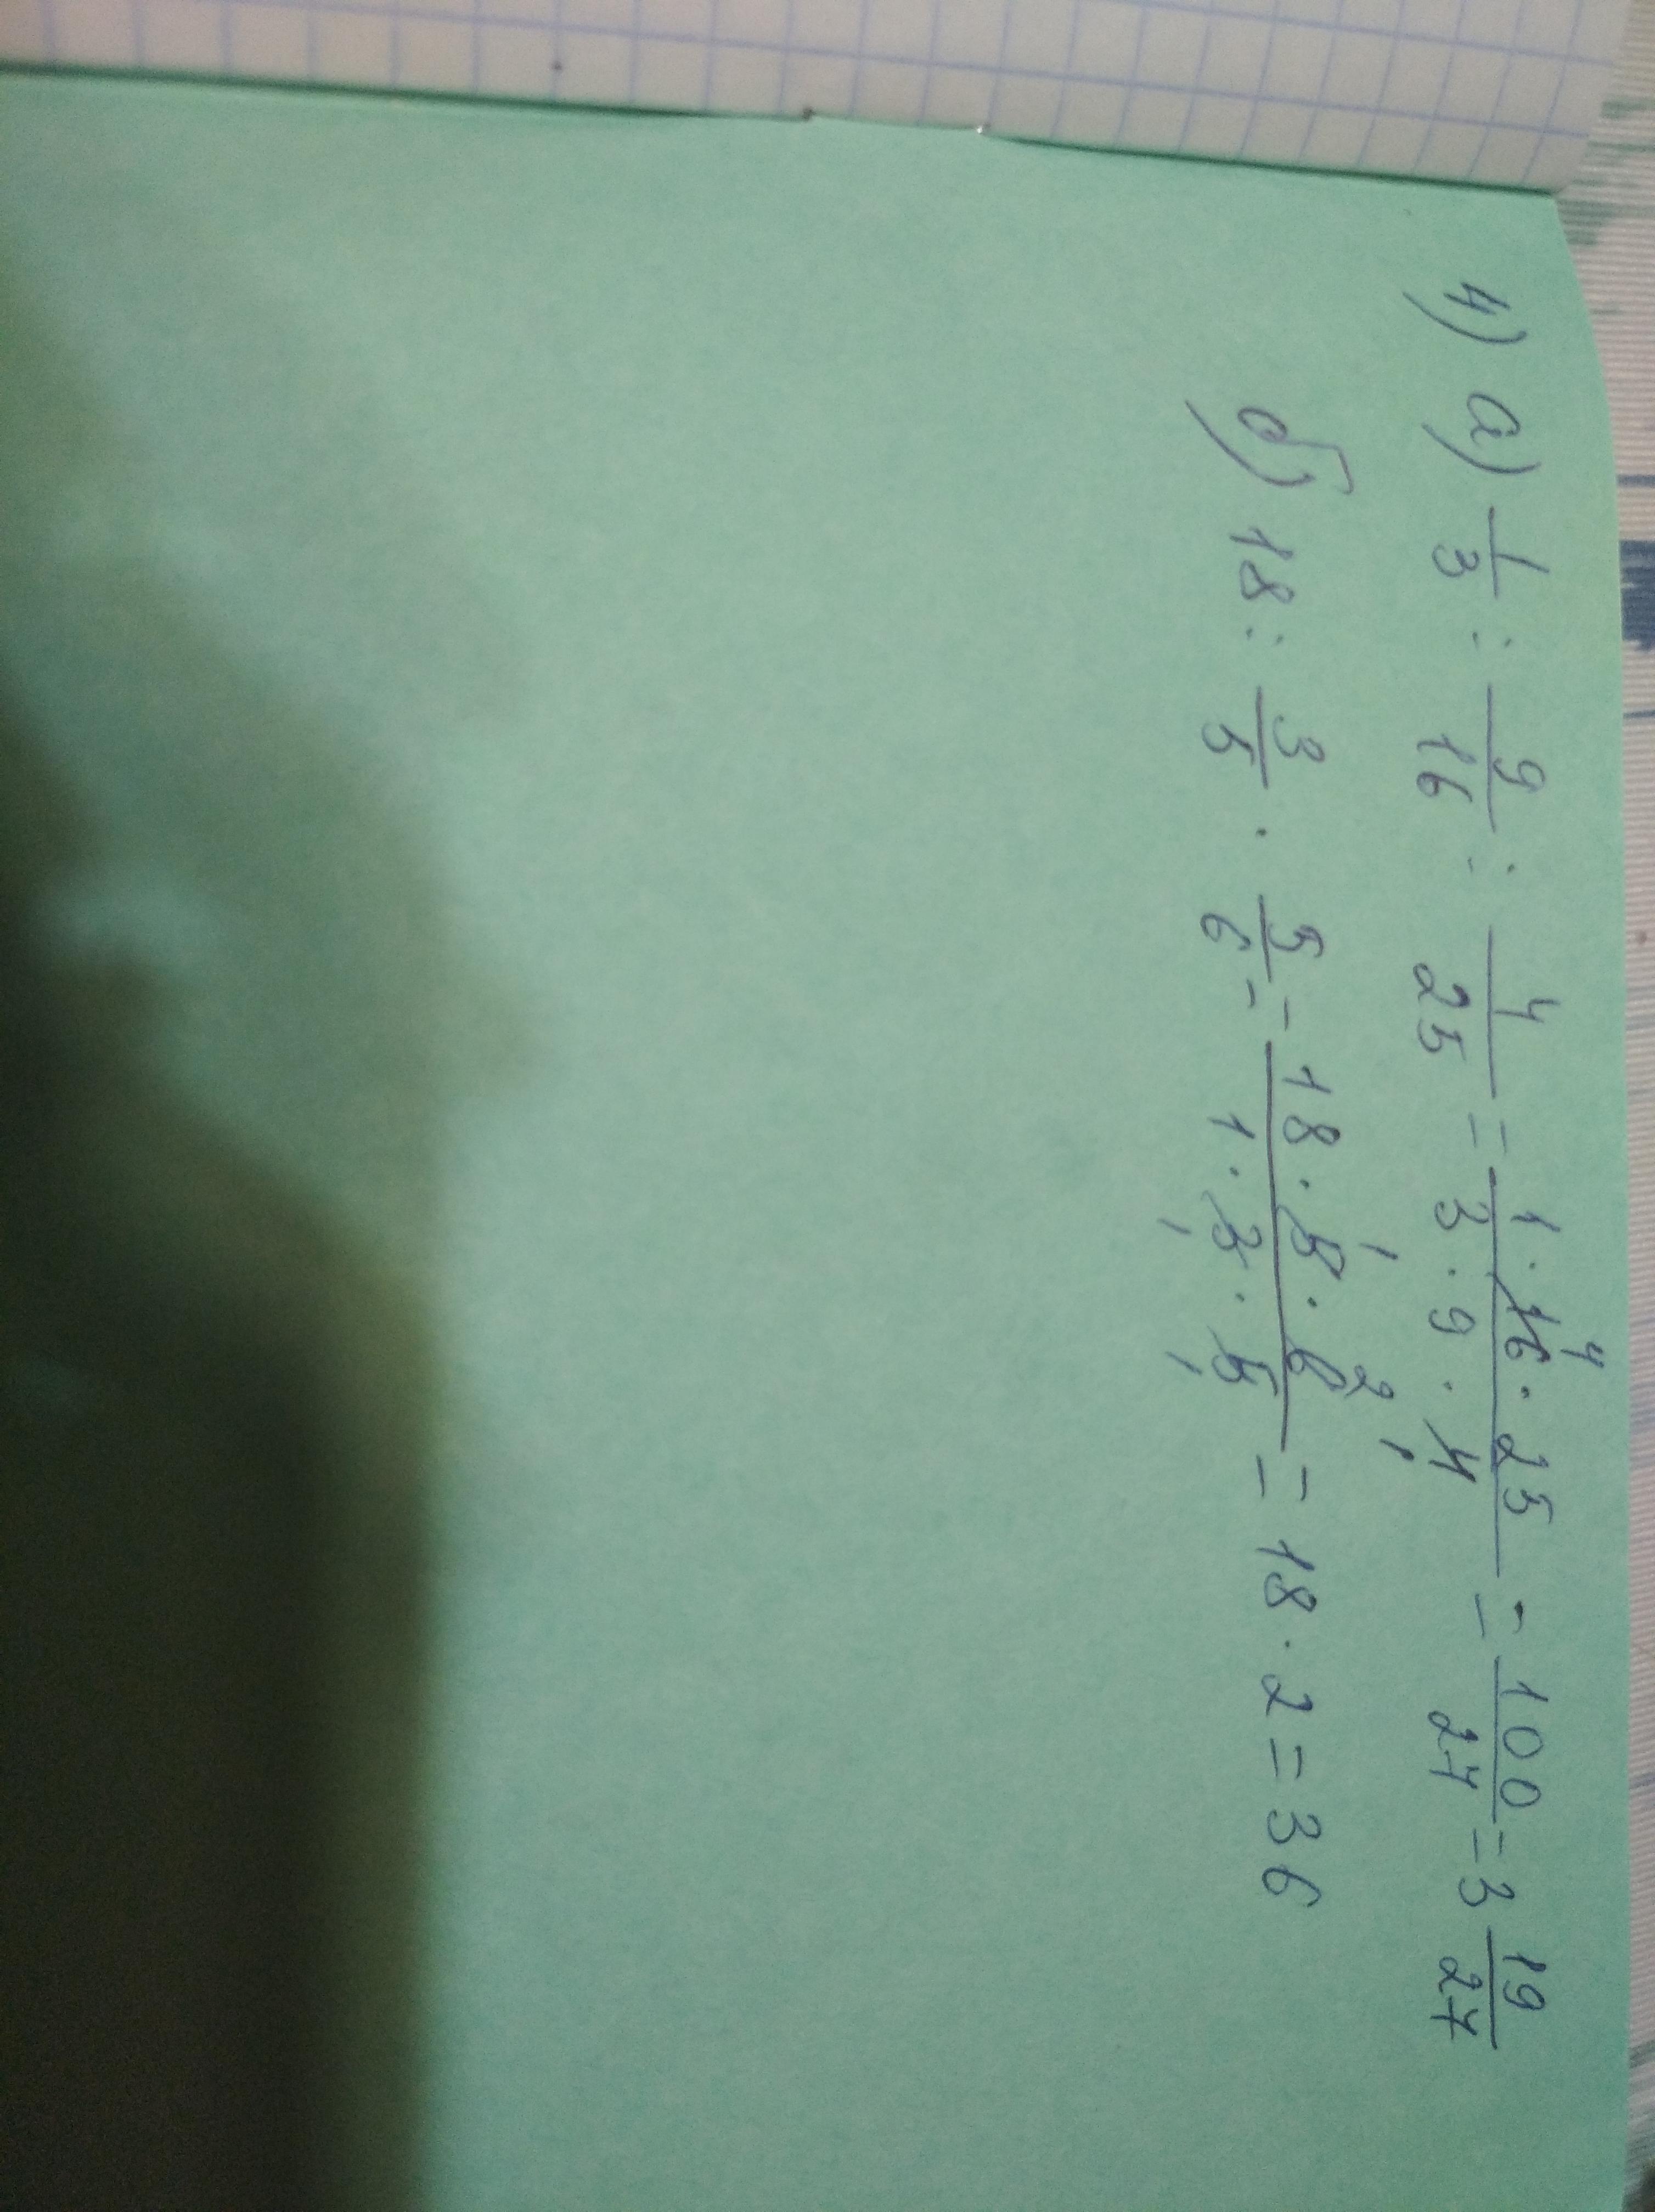 4) а) 1/3 : 9/16 : 4/25 = (1 · 16 4 · 25)/(3 · 9 · 4 1) = 100/27 = 3 19/27
б) 18 : 3/5 · 5/6 = (18 · 5 1 · 6 2)/(1 · 3 1 · 5 1) = 18 · 2 = 36